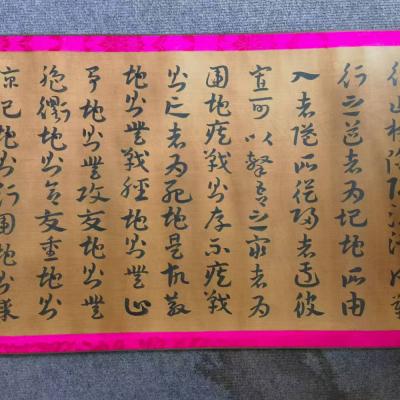 行山林險阻沮澤凡難
行之道者為圮地所由
入者隘所從歸者迂彼
寡可以擊吾之眾者為
圍地疾戰則存不疾戰
則亡者為死地是故散
地則無戰輕地則無止
爭地則無攻交地則無
絕衢地則合交重地則
掠圮地則行圍地則謀